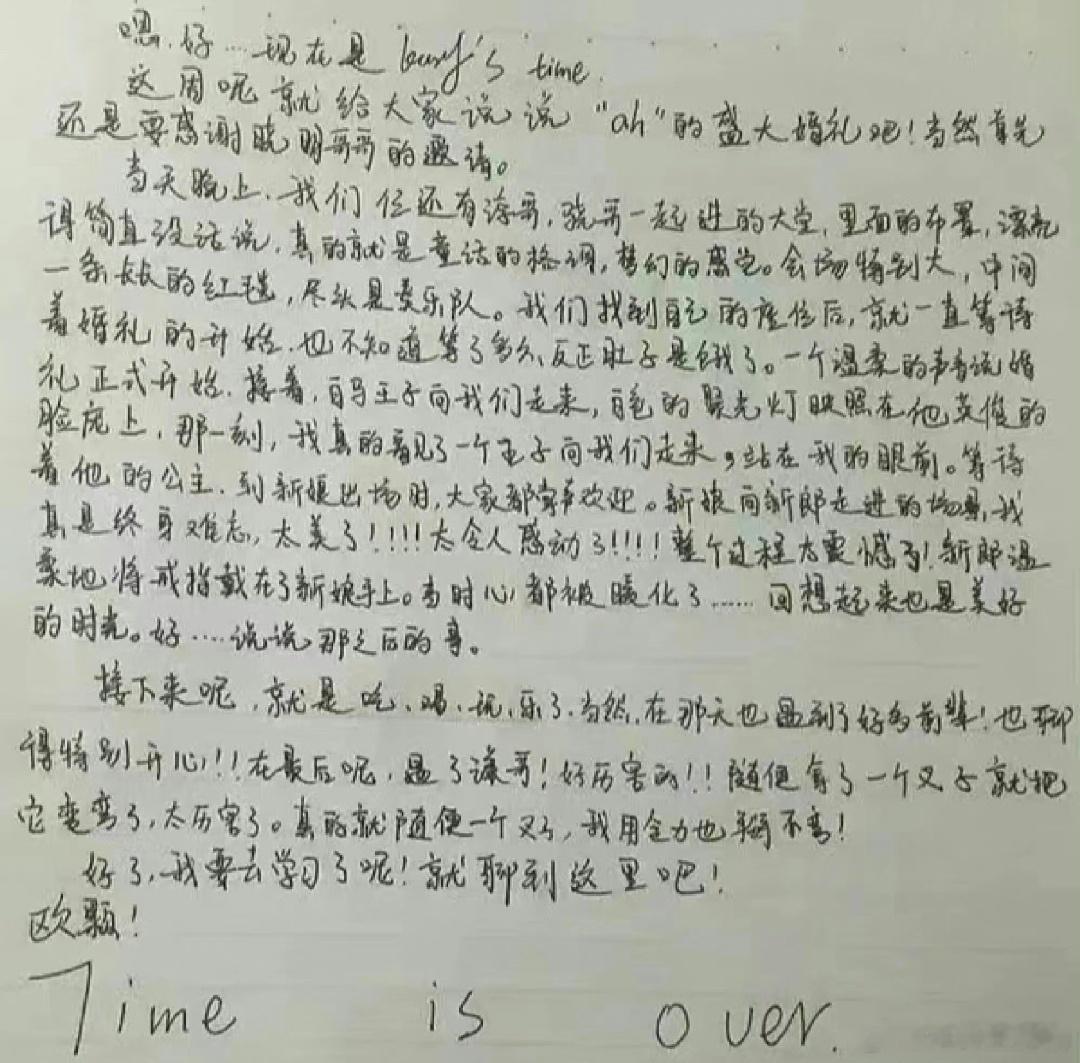 嗯.好....现在是 karry's time.
这周呢 就给大家说说 "ah" 的盛大婚礼吧！当然首先
还是要感谢晓明哥哥的邀请。
当天晚上.我们仨还有涛哥,骁哥一起进的大堂,里面的布置,漂亮
得简直没话说.真的就是童话的格调,梦幻的感觉。会场特别大,中间
一条长长的红毯,尽头是奏乐队。我们找到自己的座位后,就一直等待
着婚礼的开始.也不知道等了多久,反正肚子是饿了。一个温柔的声音说婚
礼正式开始.接着,白马王子向我们走来,白色的聚光灯映照在他英俊的
脸庞上,那一刻,我真的看见了一个王子向我们走来,站在我的眼前。等待
着他的公主.到新娘出场时,大家都掌声欢迎。新娘向新郎走进的场景,我
真是终身难忘,太美了!!!!太令人感动了!!!!整个过程太震憾了!新郎温
柔地将戒指戴在了新娘手上。当时心都被暖化了......回想起来也是美好
的时光。好....说说那之后的事。
接下来呢,就是吃、喝、玩、乐了.当然,在那天也遇到了好多前辈!也聊
得特别开心!!在最后呢,遇了谦哥!好历害的!!随便拿了一个叉子就把
它变弯了,太历害了。真的就随便一个叉子,我用全力也掰不弯!
好了,我要去学习了呢!就聊到这里吧!
欧颗!
Time is over.